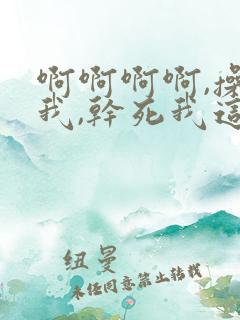 啊啊啊啊,操
我,幹死我這
纽曼
未经同意禁止转载